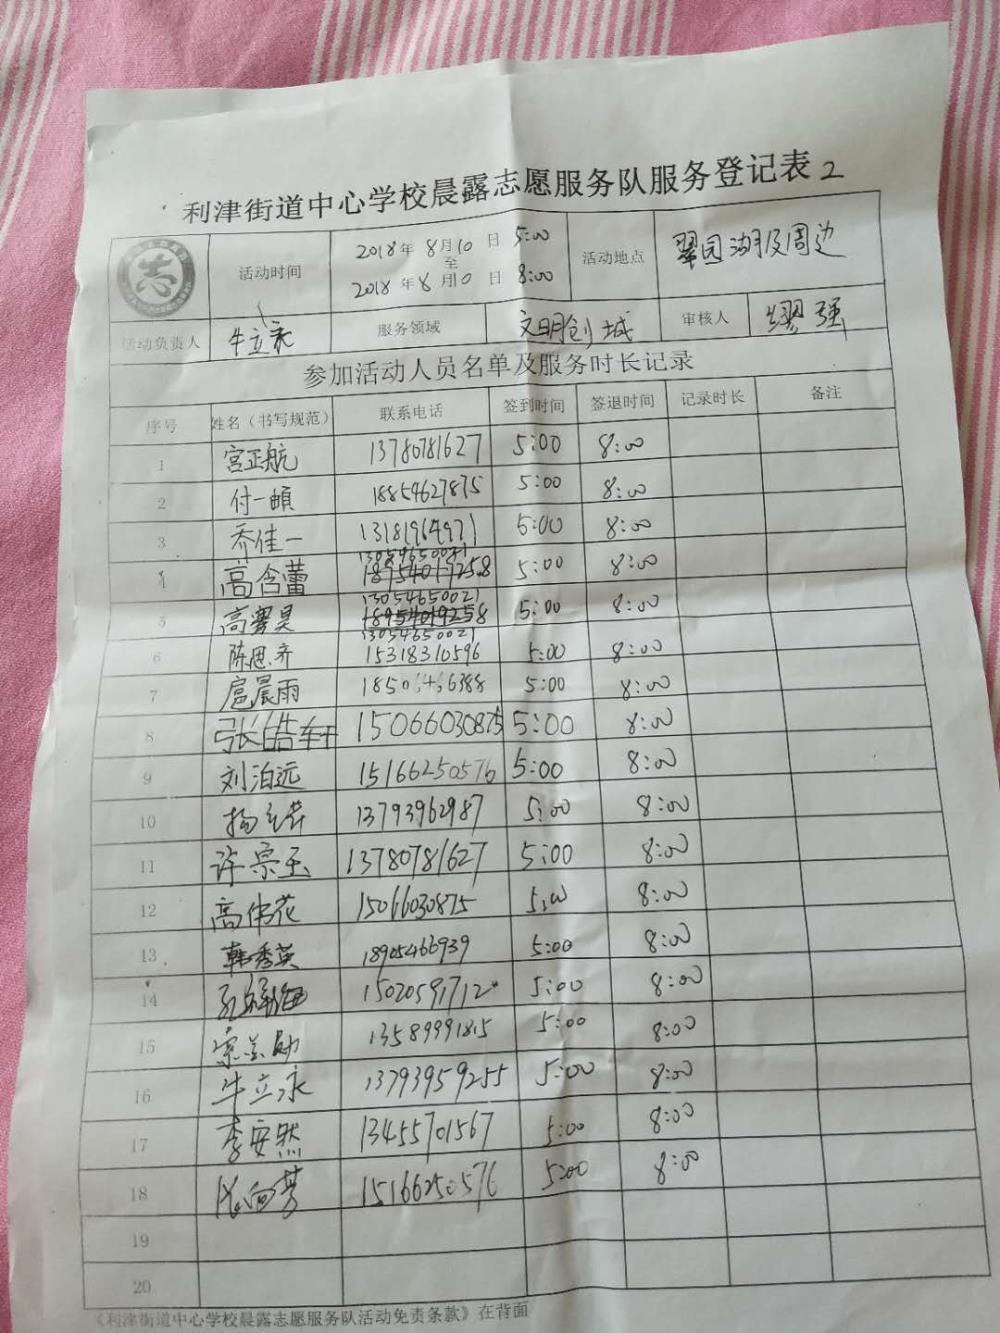 利津街道中心学校晨露志愿服务队服务登记表2
志
活动时间 2018年8月10日 5:00 至 2018年8月10日 8:00 活动地点 翠园湖及周边
活动负责人 牛立永 服务领域 文明创城 审核人 强
参加活动人员名单及服务时长记录
序号 姓名（书写规范） 联系电话 签到时间 签退时间 记录时长 备注
1 宫正航 13780781627 5:00 8:00
2 付一頔 18854627875 5:00 8:00
3 乔佳一 13181964971 5:00 8:00
13054650021
4 高含蕾 18954019258 5:00 8:00
13054650021
5 高 昊 18954019258 5:00 8:00
13054650021
6 陈思齐 15318310596 5:00 8:00
7 扈晨雨 18506466388 5:00 8:00
8 张皓轩 15066030875 5:00 8:00
9 刘泊远 15166250576 5:00 8:00
10 杨 13793962987 5:00 8:00
11 许宗玉 13780781627 5:00 8:00
12 高伟花 15066030875 5:00 8:00
13 韩秀英 18905466939 5:00 8:00
14 15020591712 5:00 8:00
15 13589991815 5:00 8:00
16 牛立永 13793959255 5:00 8:00
17 李安然 13455701567 5:00 8:00
18 15166250576 5:00 8:00
19
20
《利津街道中心学校晨露志愿服务队活动免责条款》在背面